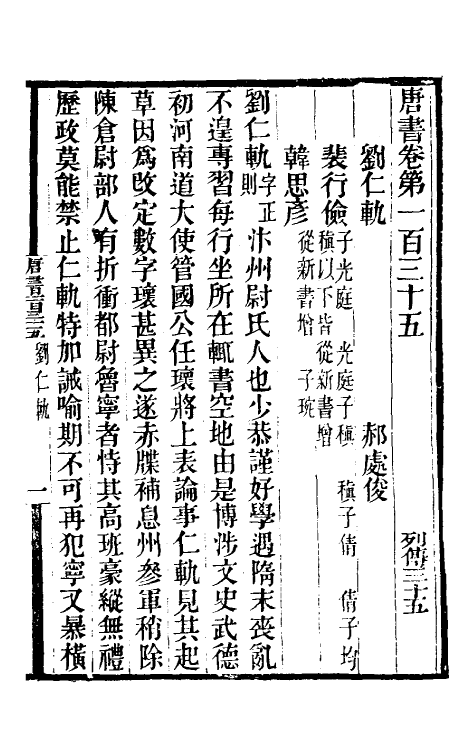 唐書卷第一百三十五 列傳三十五
劉仁軌 郝處俊
裴行儉 子光庭 光庭子稹 稹子倩 倩子均
稹以下皆從新書增
韓思彥 從新書增 子琬
劉仁軌 字正則 汴州尉氏人也少恭謹好學遇隋末喪亂
不遑專習每行坐所在輒書空地由是博涉文史武德
初河南道大使管國公任瓌將上表論事仁軌見其起
草因爲改定數字瓌甚異之遂赤牒補息州參軍稍除
陳倉尉部人有折衝都尉魯寧者恃其高班豪縱無禮
歷政莫能禁止仁軌特加誡喻期不可再犯寧又暴橫
唐書一百三十五 劉仁軌 一